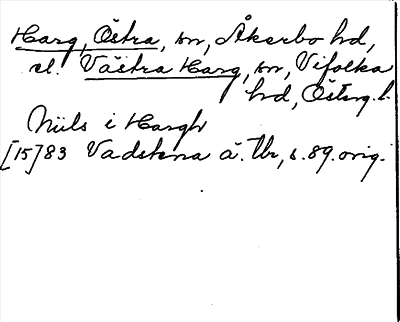 Harg, Östra, sn, Åkerbo hd,
el. Västra Harg, sn, Vifolka
hd, Östg. l.
Niils i Hargh
[15]83 Vadstena ä. Tb, s. 89. orig.